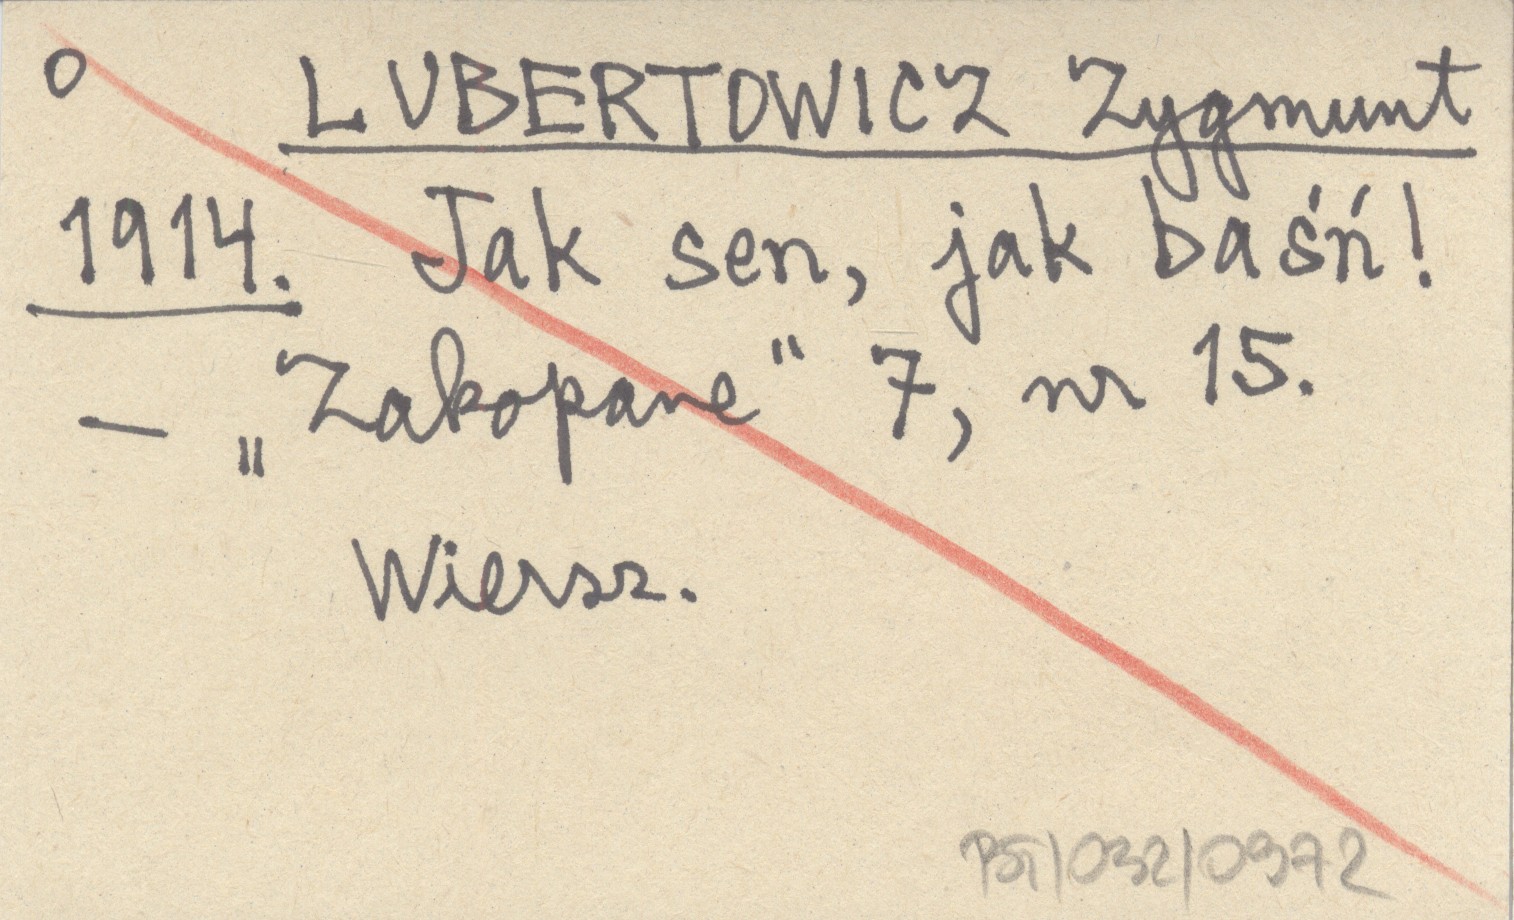 o LUBERTOWICZ Zygmunt
1914. Jak sen, jak baśń!
— „Zakopane" 7, nr 15.
Wiersz.
/032/0972